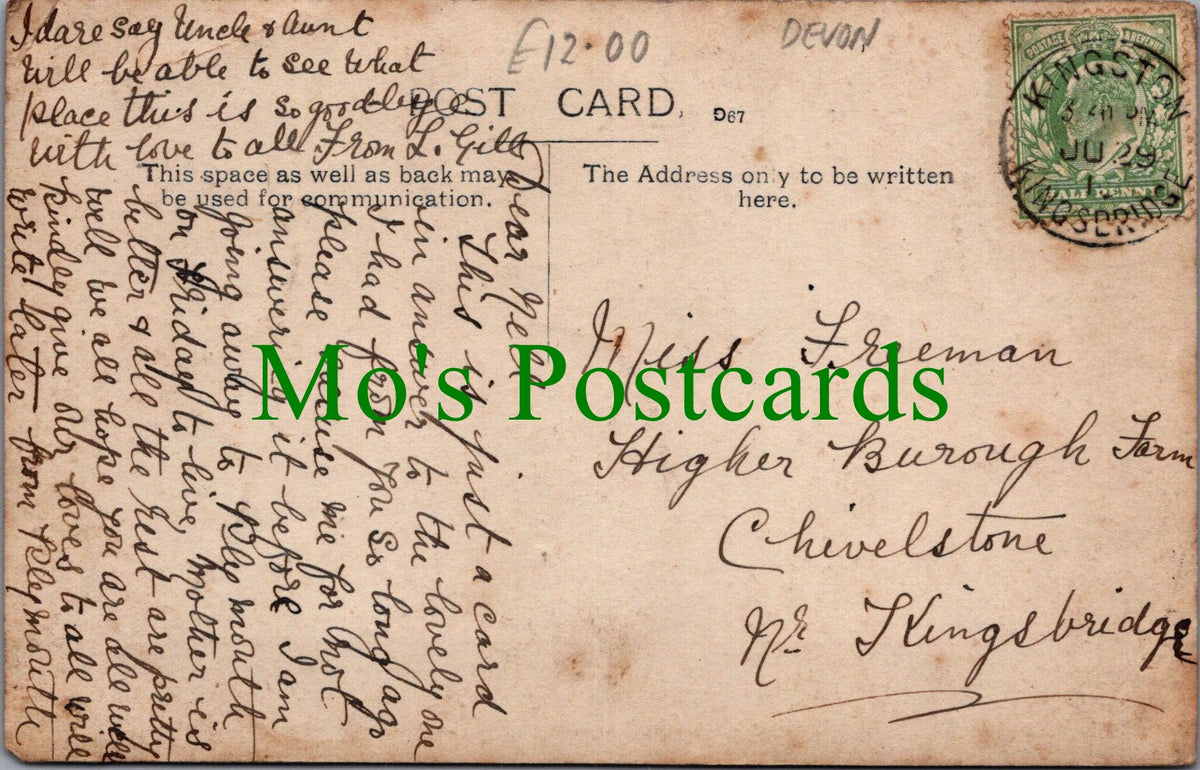 I dare say Uncle & Aunt
will be able to see what
place this is so goodbye
with love to all From L. Gill
£12.00
DEVON
POST CARD.
D67
This space as well as back may
be used for communication.
The Address only to be written
here.
POSTAGE & REVENUE
HALFPENNY
KINGSTON
JU 29
KINGSBRIDGE
Dear Nell
This is just a card
in answer to the lovely one
I had from you so long ago
please excuse me for not
answering it before I am
going away to Plymouth
on Friday to live, Mother is
better & all the rest are pretty
well we all hope you are all well
kindly give our loves to all will
write later from Plymouth
Miss Freeman
Higher Burough Farm
Chivelstone
Nr Kingsbridge
Mo's Postcards